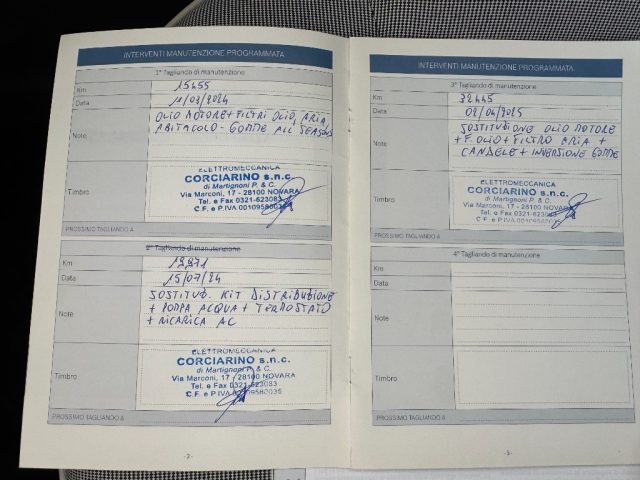 INTERVENTI MANUTENZIONE PROGRAMMATA
1° Tagliando di manutenzione
Km 15455
Data 11/03/2024
Note
OLIO MOTORE + FILTRI OLIO, ARIA,
ABITACOLO - GOMME ALL SEASONS
Timbro
ELETTROMECCANICA
CORCIARINO s.n.c.
di Martignoni P. & C.
Via Marconi, 17 - 28100 NOVARA
Tel. e Fax 0321-623083
C.F. e P.IVA
PROSSIMO TAGLIANDO A
2° Tagliando di manutenzione
Km
Data 15/07/24
Note
SOSTITUZ. KIT DISTRIBUZIONE
+ POMPA ACQUA + TERMOSTATO
+ RICARICA AC
Timbro
ELETTROMECCANICA
CORCIARINO s.n.c.
di Martignoni P. & C.
Via Marconi, 17 - 28100 NOVARA
Tel. e Fax 0321-623083
C.F. e P.IVA
PROSSIMO TAGLIANDO A
- 2 -
INTERVENTI MANUTENZIONE PROGRAMMATA
3° Tagliando di manutenzione
Km 32445
Data 02/04/2025
Note
SOSTITUZIONE OLIO MOTORE
+ F. OLIO + FILTRO ARIA +
CANDELE + INVERSIONE GOMME
Timbro
ELETTROMECCANICA
CORCIARINO s.n.c.
di Martignoni P. & C.
Via Marconi, 17 - 28100 NOVARA
Tel. e Fax 0321-623083
C.F. e P.IVA
PROSSIMO TAGLIANDO A
4° Tagliando di manutenzione
Km
Data
Note
Timbro
PROSSIMO TAGLIANDO A